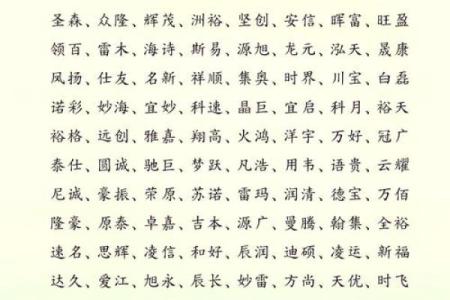 圣森、众隆、辉茂、洲裕、坚创、安信、晖富、旺盈
领百、雷木、海诗、斯易、源旭、龙元、泓天、晟康
凤扬、仕友、名新、祥顺、集奥、时界、川宝、白磊
诺彩、妙海、宜妙、科速、晶巨、宜启、科月、裕天
裕格、远创、雅嘉、翔高、火鸿、洋宇、万好、冠广
泰仕、圆诚、驰巨、梦跃、凡浩、用韦、语贵、云耀
尼诚、豪振、荣原、苏诺、雷玛、润清、德宝、万佰
隆豪、原泰、卓嘉、吉本、源广、曼腾、翰集、全裕
速名、思辉、凌信、和好、辰润、迪硕、凌运、新福
达久、爱江、旭永、辰长、妙雷、方尚、天优、时飞